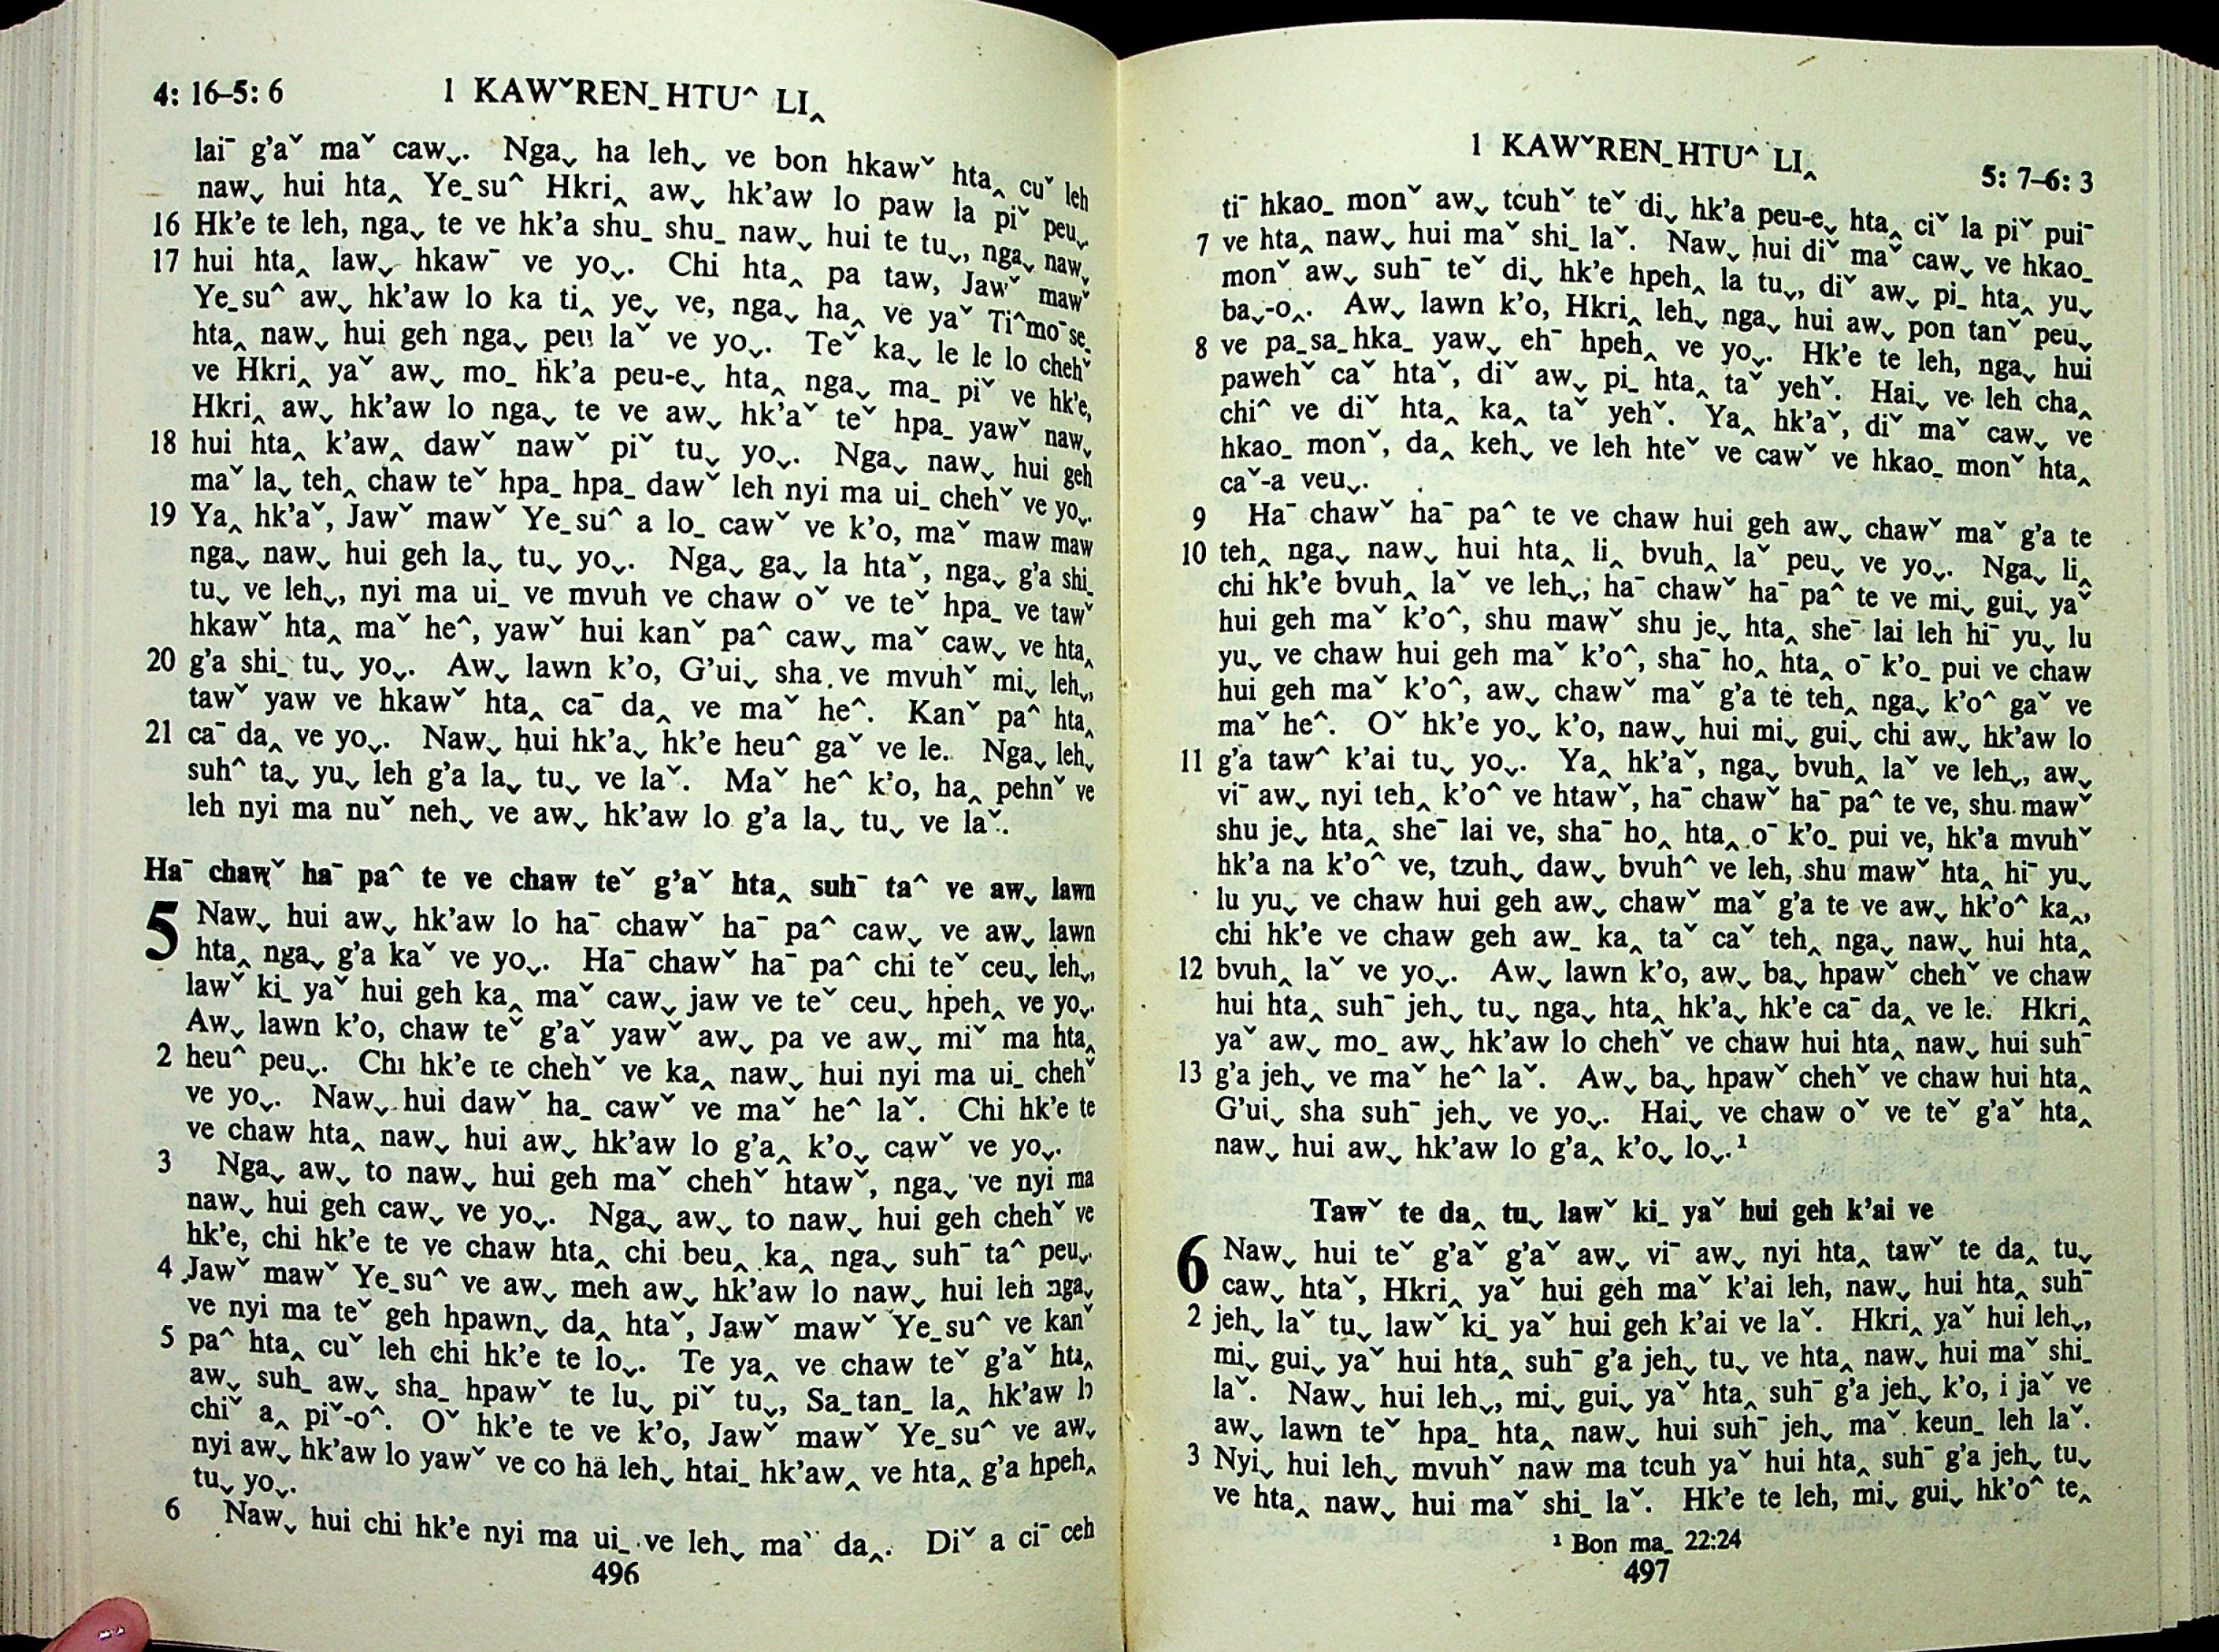 4: 16–5: 6 1 KAWˇREN_HTU^ LI‸
laiˉ g'aˇ maˇ cawˬ. Ngaˬ ha lehˬ ve bon hkawˇ hta‸ cuˇ leh
nawˬ hui hta‸ Ye_su^ Hkri‸ awˬ hk'aw lo paw la piˇ peuˬ
16 Hk'e te leh, ngaˬ te ve hk'a shu_ shu_ nawˬ hui te tuˬ, ngaˬ nawˬ
17 hui hta‸ lawˬ hkawˉ ve yoˬ. Chi hta‸ pa taw, Jawˇ mawˇ
Ye_su^ awˬ hk'aw lo ka ti‸ yeˬ ve, ngaˬ ha‸ ve yaˇ Ti^moˉse_
hta‸ nawˬ hui geh ngaˬ peu laˇ ve yoˬ. Teˇ kaˬ le le lo chehˇ
ve Hkri‸ yaˇ awˬ mo_ hk'a peu-eˬ hta‸ ngaˬ ma_ piˇ ve hk'e,
Hkri‸ awˬ hk'aw lo ngaˬ te ve awˬ hk'aˇ teˇ hpa_ yawˇ nawˬ
18 hui hta‸ k'aw‸ dawˇ nawˇ piˇ tuˬ yoˬ. Ngaˬ nawˬ hui geh
maˇ laˬ teh‸ chaw teˇ hpa_ hpa_ dawˇ leh nyi ma ui_ chehˇ ve yoˬ.
19 Ya‸ hk'aˇ, Jawˇ mawˇ Ye_su^ a lo_ cawˇ ve k'o, maˇ maw maw
ngaˬ nawˬ hui geh laˬ tuˬ yoˬ. Ngaˬ gaˬ la htaˇ, ngaˬ g'a shi_
tuˬ ve lehˬ, nyi ma ui_ ve mvuh ve chaw oˇ ve teˇ hpa_ ve tawˇ
hkawˇ hta‸ maˇ he^, yawˇ hui kanˇ pa^ cawˬ maˇ cawˬ ve hta‸
20 g'a shi_ tuˬ yoˬ. Awˬ lawn k'o, G'uiˬ sha ve mvuhˇ miˬ lehˬ,
tawˇ yaw ve hkawˇ hta‸ caˉ da‸ ve maˇ he^. Kanˇ pa^ hta‸
21 caˉ da‸ ve yoˬ. Nawˬ hui hk'aˬ hk'e heu^ gaˇ ve le. Ngaˬ lehˬ
suh^ taˬ yuˬ leh g'a laˬ tuˬ ve laˇ. Maˇ he^ k'o, ha‸ pehnˇ ve
leh nyi ma nuˇ nehˬ ve awˬ hk'aw lo g'a laˬ tuˬ ve laˇ.
Haˉ chawˇ haˉ pa^ te ve chaw teˇ g'aˇ hta‸ suhˉ ta^ ve awˬ lawn
5 Nawˬ hui awˬ hk'aw lo haˉ chawˇ haˉ pa^ cawˬ ve awˬ lawn
hta‸ ngaˬ g'a kaˇ ve yoˬ. Haˉ chawˇ haˉ pa^ chi teˇ ceuˬ lehˬ,
lawˇ ki_ yaˇ hui geh ka‸ maˇ cawˬ jaw ve teˇ ceuˬ hpeh‸ ve yoˬ.
Awˬ lawn k'o, chaw teˇ g'aˇ yawˇ awˬ pa ve awˬ miˇ ma hta‸
2 heu^ peuˬ. Chi hk'e te chehˇ ve ka‸ nawˬ hui nyi ma ui_ chehˇ
ve yoˬ. Nawˬ hui dawˇ ha_ cawˇ ve maˇ he^ laˇ. Chi hk'e te
ve chaw hta‸ nawˬ hui awˬ hk'aw lo g'a‸ k'oˬ cawˇ ve yoˬ.
3 Ngaˬ awˬ to nawˬ hui geh maˇ chehˇ htawˇ, ngaˬ ve nyi ma
nawˬ hui geh cawˬ ve yoˬ. Ngaˬ awˬ to nawˬ hui geh chehˇ ve
hk'e, chi hk'e te ve chaw hta‸ chi beu‸ ka‸ ngaˬ suhˉ ta^ peuˬ.
4 Jawˇ mawˇ Ye_su^ ve awˬ meh awˬ hk'aw lo nawˬ hui leh ngaˬ
ve nyi ma teˇ geh hpawnˬ da‸ htaˇ, Jawˇ mawˇ Ye_su^ ve kanˇ
5 pa^ hta‸ cuˇ leh chi hk'e te loˬ. Te ya‸ ve chaw teˇ g'aˇ hta‸
awˬ suh_ awˬ sha_ hpawˇ te luˬ piˇ tuˬ, Sa_tan_ la‸ hk'aw lo
chiˇ a‸ piˇ-o^. Oˇ hk'e te ve k'o, Jawˇ mawˇ Ye_su^ ve awˬ
nyi awˬ hk'aw lo yawˇ ve co ha lehˬ htai_ hk'aw‸ ve hta‸ g'a hpeh‸
tuˬ yoˬ.
6 Nawˬ hui chi hk'e nyi ma ui_ ve lehˬ maˇ da‸. Diˇ a ciˉ ceh
496
1 KAWˇREN_HTU^ LI‸ 5: 7–6: 3
tiˉ hkao_ monˇ awˬ tcuhˇ teˇ diˬ hk'a peu-eˬ hta‸ ciˇ la piˇ puiˉ
7 ve hta‸ nawˬ hui maˇ shi_ laˇ. Nawˬ hui diˇ maˇ cawˬ ve hkao_
monˇ awˬ suhˉ teˇ diˬ hk'e hpeh‸ la tuˬ, diˇ awˬ pi_ hta‸ yuˬ
baˬ-o‸. Awˬ lawn k'o, Hkri‸ lehˬ ngaˬ hui awˬ pon tanˇ peuˬ
8 ve pa_sa_hka_ yawˬ ehˉ hpeh‸ ve yoˬ. Hk'e te leh, ngaˬ hui
pawehˇ caˇ htaˇ, diˇ awˬ pi_ hta‸ taˇ yehˇ. Haiˬ ve leh cha‸
chi^ ve diˇ hta‸ ka‸ taˇ yehˇ. Ya‸ hk'aˇ, diˇ maˇ cawˬ ve
hkao_ monˇ, da‸ kehˬ ve leh hteˇ ve cawˇ ve hkao_ monˇ hta‸
caˇ-a veuˬ.
9 Haˉ chawˇ haˉ pa^ te ve chaw hui geh awˬ chawˇ maˇ g'a te
10 teh‸ ngaˬ nawˬ hui hta‸ li‸ bvuh‸ laˇ peuˬ ve yoˬ. Ngaˬ li‸
chi hk'e bvuh‸ laˇ ve lehˬ, haˉ chawˇ haˉ pa^ te ve miˬ guiˬ yaˇ
hui geh maˇ k'o^, shu mawˇ shu jeˬ hta‸ sheˉ lai leh hiˉ yuˬ lu
yuˬ ve chaw hui geh maˇ k'o^, shaˉ ho‸ hta‸ oˉ k'o_ pui ve chaw
hui geh maˇ k'o^, awˬ chawˇ maˇ g'a te teh‸ ngaˬ k'o^ gaˇ ve
maˇ he^. Oˇ hk'e yoˬ k'o, nawˬ hui miˬ guiˬ chi awˬ hk'aw lo
11 g'a taw^ k'ai tuˬ yoˬ. Ya‸ hk'aˇ, ngaˬ bvuh‸ laˇ ve lehˬ, awˬ
viˉ awˬ nyi teh‸ k'o^ ve htawˇ, haˉ chawˇ haˉ pa^ te ve, shu mawˇ
shu jeˬ hta‸ sheˉ lai ve, shaˉ ho‸ hta‸ oˉ k'o_ pui ve, hk'a mvuhˇ
hk'a na k'o^ ve, tzuhˬ dawˬ bvuh^ ve leh, shu mawˇ hta‸ hiˉ yuˬ
lu yuˬ ve chaw hui geh awˬ chawˇ maˇ g'a te ve awˬ hk'o^ ka‸,
chi hk'e ve chaw geh aw_ ka‸ taˇ caˇ teh‸ ngaˬ nawˬ hui hta‸
12 bvuh‸ laˇ ve yoˬ. Awˬ lawn k'o, awˬ baˬ hpawˇ chehˇ ve chaw
hui hta‸ suhˉ jehˬ tuˬ ngaˬ hta‸ hk'aˬ hk'e caˉ da‸ ve le. Hkri‸
yaˇ awˬ mo_ awˬ hk'aw lo chehˇ ve chaw hui hta‸ nawˬ hui suhˉ
13 g'a jehˬ ve maˇ he^ laˇ. Awˬ baˬ hpawˇ chehˇ ve chaw hui hta‸
G'uiˬ sha suhˉ jehˬ ve yoˬ. Haiˬ ve chaw oˇ ve teˇ g'aˇ hta‸
nawˬ hui awˬ hk'aw lo g'a‸ k'oˬ loˬ.¹
Tawˇ te da‸ tuˬ lawˇ ki_ yaˇ hui geh k'ai ve
6 Nawˬ hui teˇ g'aˇ g'aˇ awˬ viˉ awˬ nyi hta‸ tawˇ te da‸ tuˬ
cawˬ htaˇ, Hkri‸ yaˇ hui geh maˇ k'ai leh, nawˬ hui hta‸ suhˉ
2 jehˬ laˇ tuˬ lawˇ ki_ yaˇ hui geh k'ai ve laˇ. Hkri‸ yaˇ hui lehˬ,
miˬ guiˬ yaˇ hui hta‸ suhˉ g'a jehˬ tuˬ ve hta‸ nawˬ hui maˇ shi_
laˇ. Nawˬ hui lehˬ, miˬ guiˬ yaˇ hta‸ suhˉ g'a jehˬ k'o, i jaˇ ve
awˬ lawn teˇ hpa_ hta‸ nawˬ hui suhˉ jehˬ maˇ keun_ leh laˇ.
3 Nyiˬ hui lehˬ mvuhˇ naw ma tcuh yaˇ hui hta‸ suhˉ g'a jehˬ tuˬ
ve hta‸ nawˬ hui maˇ shi_ laˇ. Hk'e te leh, miˬ guiˬ hk'o^ te‸
¹ Bon ma_ 22:24
497